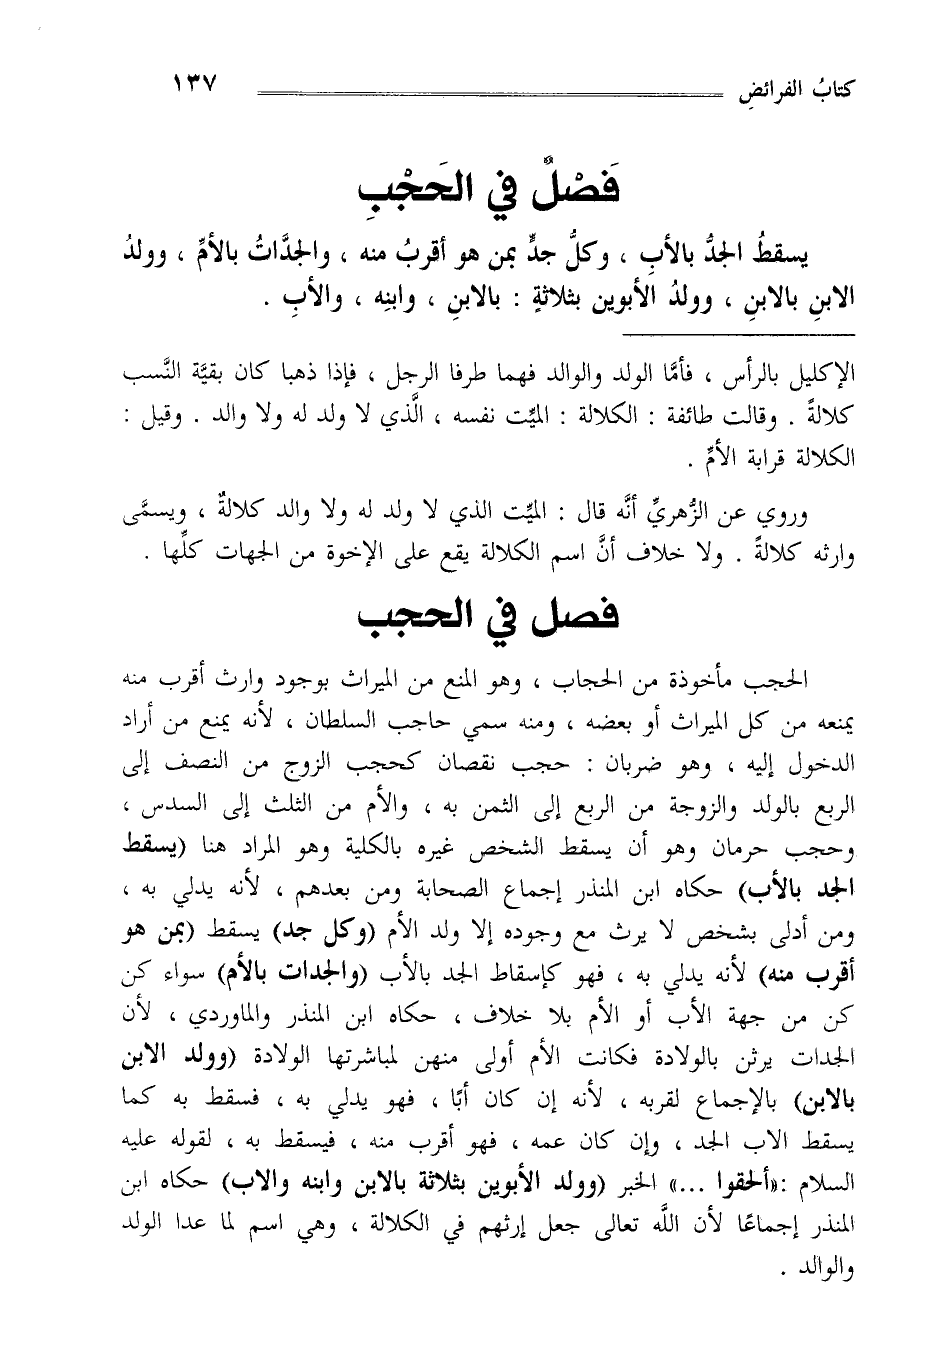 كتابُ الفرائضِ ١٣٧
فَصْلٌ في الحَجْبِ
يسقطُ الجدُّ بالأبِ ، وكلُّ جدٍّ بمن هو أقربُ منه ، والجدَّاتُ بالأمِّ ، وولدُ
الابنِ بالابنِ ، وولدُ الأبوين بثلاثةٍ : بالابنِ ، وابنِه ، والأبِ .
الإكليل بالرأس ، فأمَّا الولد والوالد فهما طرفا الرجل ، فإذا ذهبا كان بقيَّة النَّسب
كلالةً . وقالت طائفة : الكلالة : الميِّت نفسه ، الَّذي لا ولد له ولا والد . وقيل :
الكلالة قرابة الأمِّ .
وروي عن الزُّهريِّ أنَّه قال : الميِّت الذي لا ولد له ولا والد كلالةٌ ، ويسمَّى
وارثه كلالةً . ولا خلاف أنَّ اسم الكلالة يقع على الإخوة من الجهات كلِّها .
فصل في الحجب
الحجب مأخوذة من الحجاب ، وهو المنع من الميراث بوجود وارث أقرب منه
يمنعه من كل الميراث أو بعضه ، ومنه سمي حاجب السلطان ، لأنه يمنع من أراد
الدخول إليه ، وهو ضربان : حجب نقصان كحجب الزوج من النصف إلى
الربع بالولد والزوجة من الربع إلى الثمن به ، والأم من الثلث إلى السدس ،
وحجب حرمان وهو أن يسقط الشخص غيره بالكلية وهو المراد هنا (يسقط
الجد بالأب) حكاه ابن المنذر إجماع الصحابة ومن بعدهم ، لأنه يدلي به ،
ومن أدلى بشخص لا يرث مع وجوده إلا ولد الأم (وكل جد) يسقط (بمن هو
أقرب منه) لأنه يدلي به ، فهو كإسقاط الجد بالأب (والجدات بالأم) سواء كن
كن من جهة الأب أو الأم بلا خلاف ، حكاه ابن المنذر والماوردي ، لأن
الجدات يرثن بالولادة فكانت الأم أولى منهن لمباشرتها الولادة (وولد الابن
بالابن) بالإجماع لقربه ، لأنه إن كان أبًا ، فهو يدلي به ، فسقط به كما
يسقط الاب الجد ، وإن كان عمه ، فهو أقرب منه ، فيسقط به ، لقوله عليه
السلام :«ألحقوا ...» الخبر (وولد الأبوين بثلاثة بالابن وابنه والاب) حكاه ابن
المنذر إجماعًا لأن الله تعالى جعل إرثهم في الكلالة ، وهي اسم لما عدا الولد
والوالد .